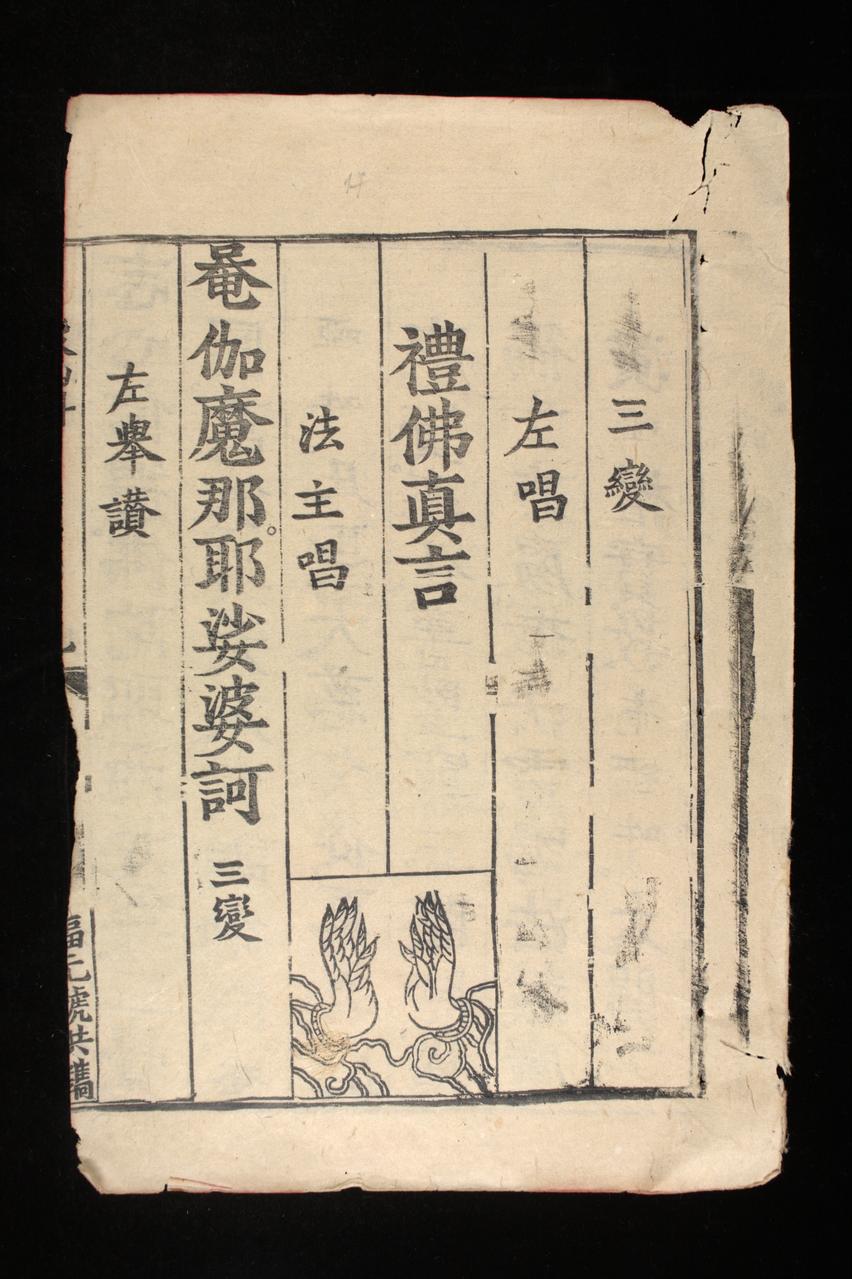 三變
左唱
禮佛真言
法主唱
唵伽魔那。耶娑婆訶 三變
左舉讃
福元號共鐫